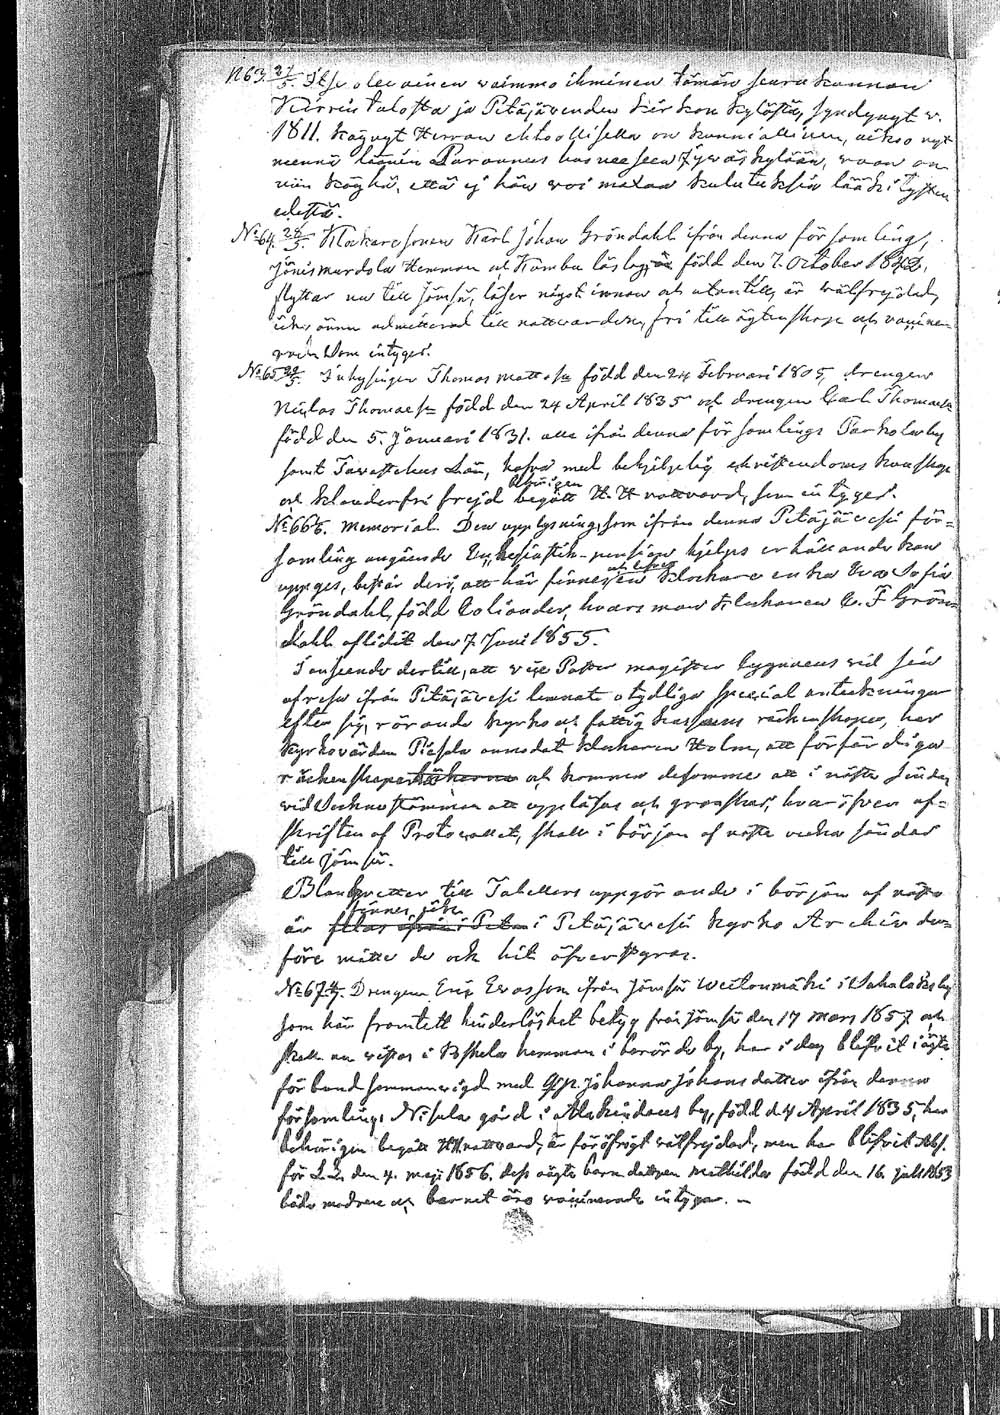 N63. 27/5. Itse olevainen waimmo ihminen tämän seurakunnan
Kirris talosta ja Petäjäveden kirkon kylästä, syndynyt v.
1811. käynyt Herran ehtoollisella on kunniallinen, aikoo nyt
mennä läänin Parannus huoneeseen Jywäskylään, waan on
niin köyhä, että ej hän woi maxaa kulutuksia lääkityxen
edestä.
No 64. 28/5. Klockaresonen Karl Johan Gröndahl ifrån denna församling,
hemman och född den 7. October 1842,
flyttar nu till Jämsä, läser något innan och utantill, är wälfrejdad,
icke ännu admitterad till nattwarden, fri till ägtenskap och vaccine-
rad. Som intygas.
No 65 29/5. Inhysingen Thomas Mattsson född den 24 Februari 1805, drengen
Niclas Thomasson född den 24 April 1835 och drengen Carl Thomasson
född den 5. Januari 1831. alla ifrån denna församlings by
samt Tavastehus Län, hafva med behjelplig christendoms kunskap
och klanderfri frejd behörigen begått H. H. nattvard, som intygas.
No 66 Memorial. Den upplysning, som ifrån denna Petäjävesi för=
samling angående Ecklesiastik-pensions hjelps erhållande kan
uppges, består deri, att här finnes och lefver en klockare enka Eva Sofia
Gröndahl, född Colliander, hvars man Klockaren C. F. Grön-
dahl aflidit den 7. Juni 1855.
I anseende dertill, att vice Pastor magister Cygnaeus vid sin
afresa ifrån Petäjävesi lemnat otydliga special anteckningar
efter sig, rörande kyrko och fattig kassans räkenskaper, har
kyrkovärden Piesala anmodat klockaren Holm, att förfärdiga
räkenskaper och komma desamma att i nästa
vid Sockne stämman att uppläsas och granskas, hvaröfver af=
skriften af Protocollet, skall i början af nästa vecka sändas
till Jämsä.
Blanketter till Tabellers uppgörande i början af nästa
år finnes icke i Petäjävesi kyrko Archiv der=
före måtte de ock hit öfverstyras.
No 67. Drengen Eric Evasson ifrån Jämsä i by
som här framtett hinderlöshet betyg från Jämsä den 17 mars 1857 och
skall nu vistas i hemman i berörde by, har i dag blifvit i ägta
förbund sammanvigd med Johanna Johansdotter ifrån denna
församling, Nisula gård i by, född d. 4 April 1835, har
behörigen begått HHnattvard, är för öfrigt välfrejdad, men har blifvit Abs.
för L. L. den 4. maji 1856. dess oägta barn dottren Mathilda född den 16. juli 1853
både modren och barnet äro vaccinerade intygar. —